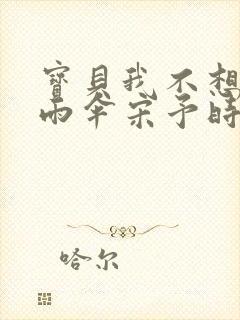 寶貝我不想
雨傘宋予時
哈尔